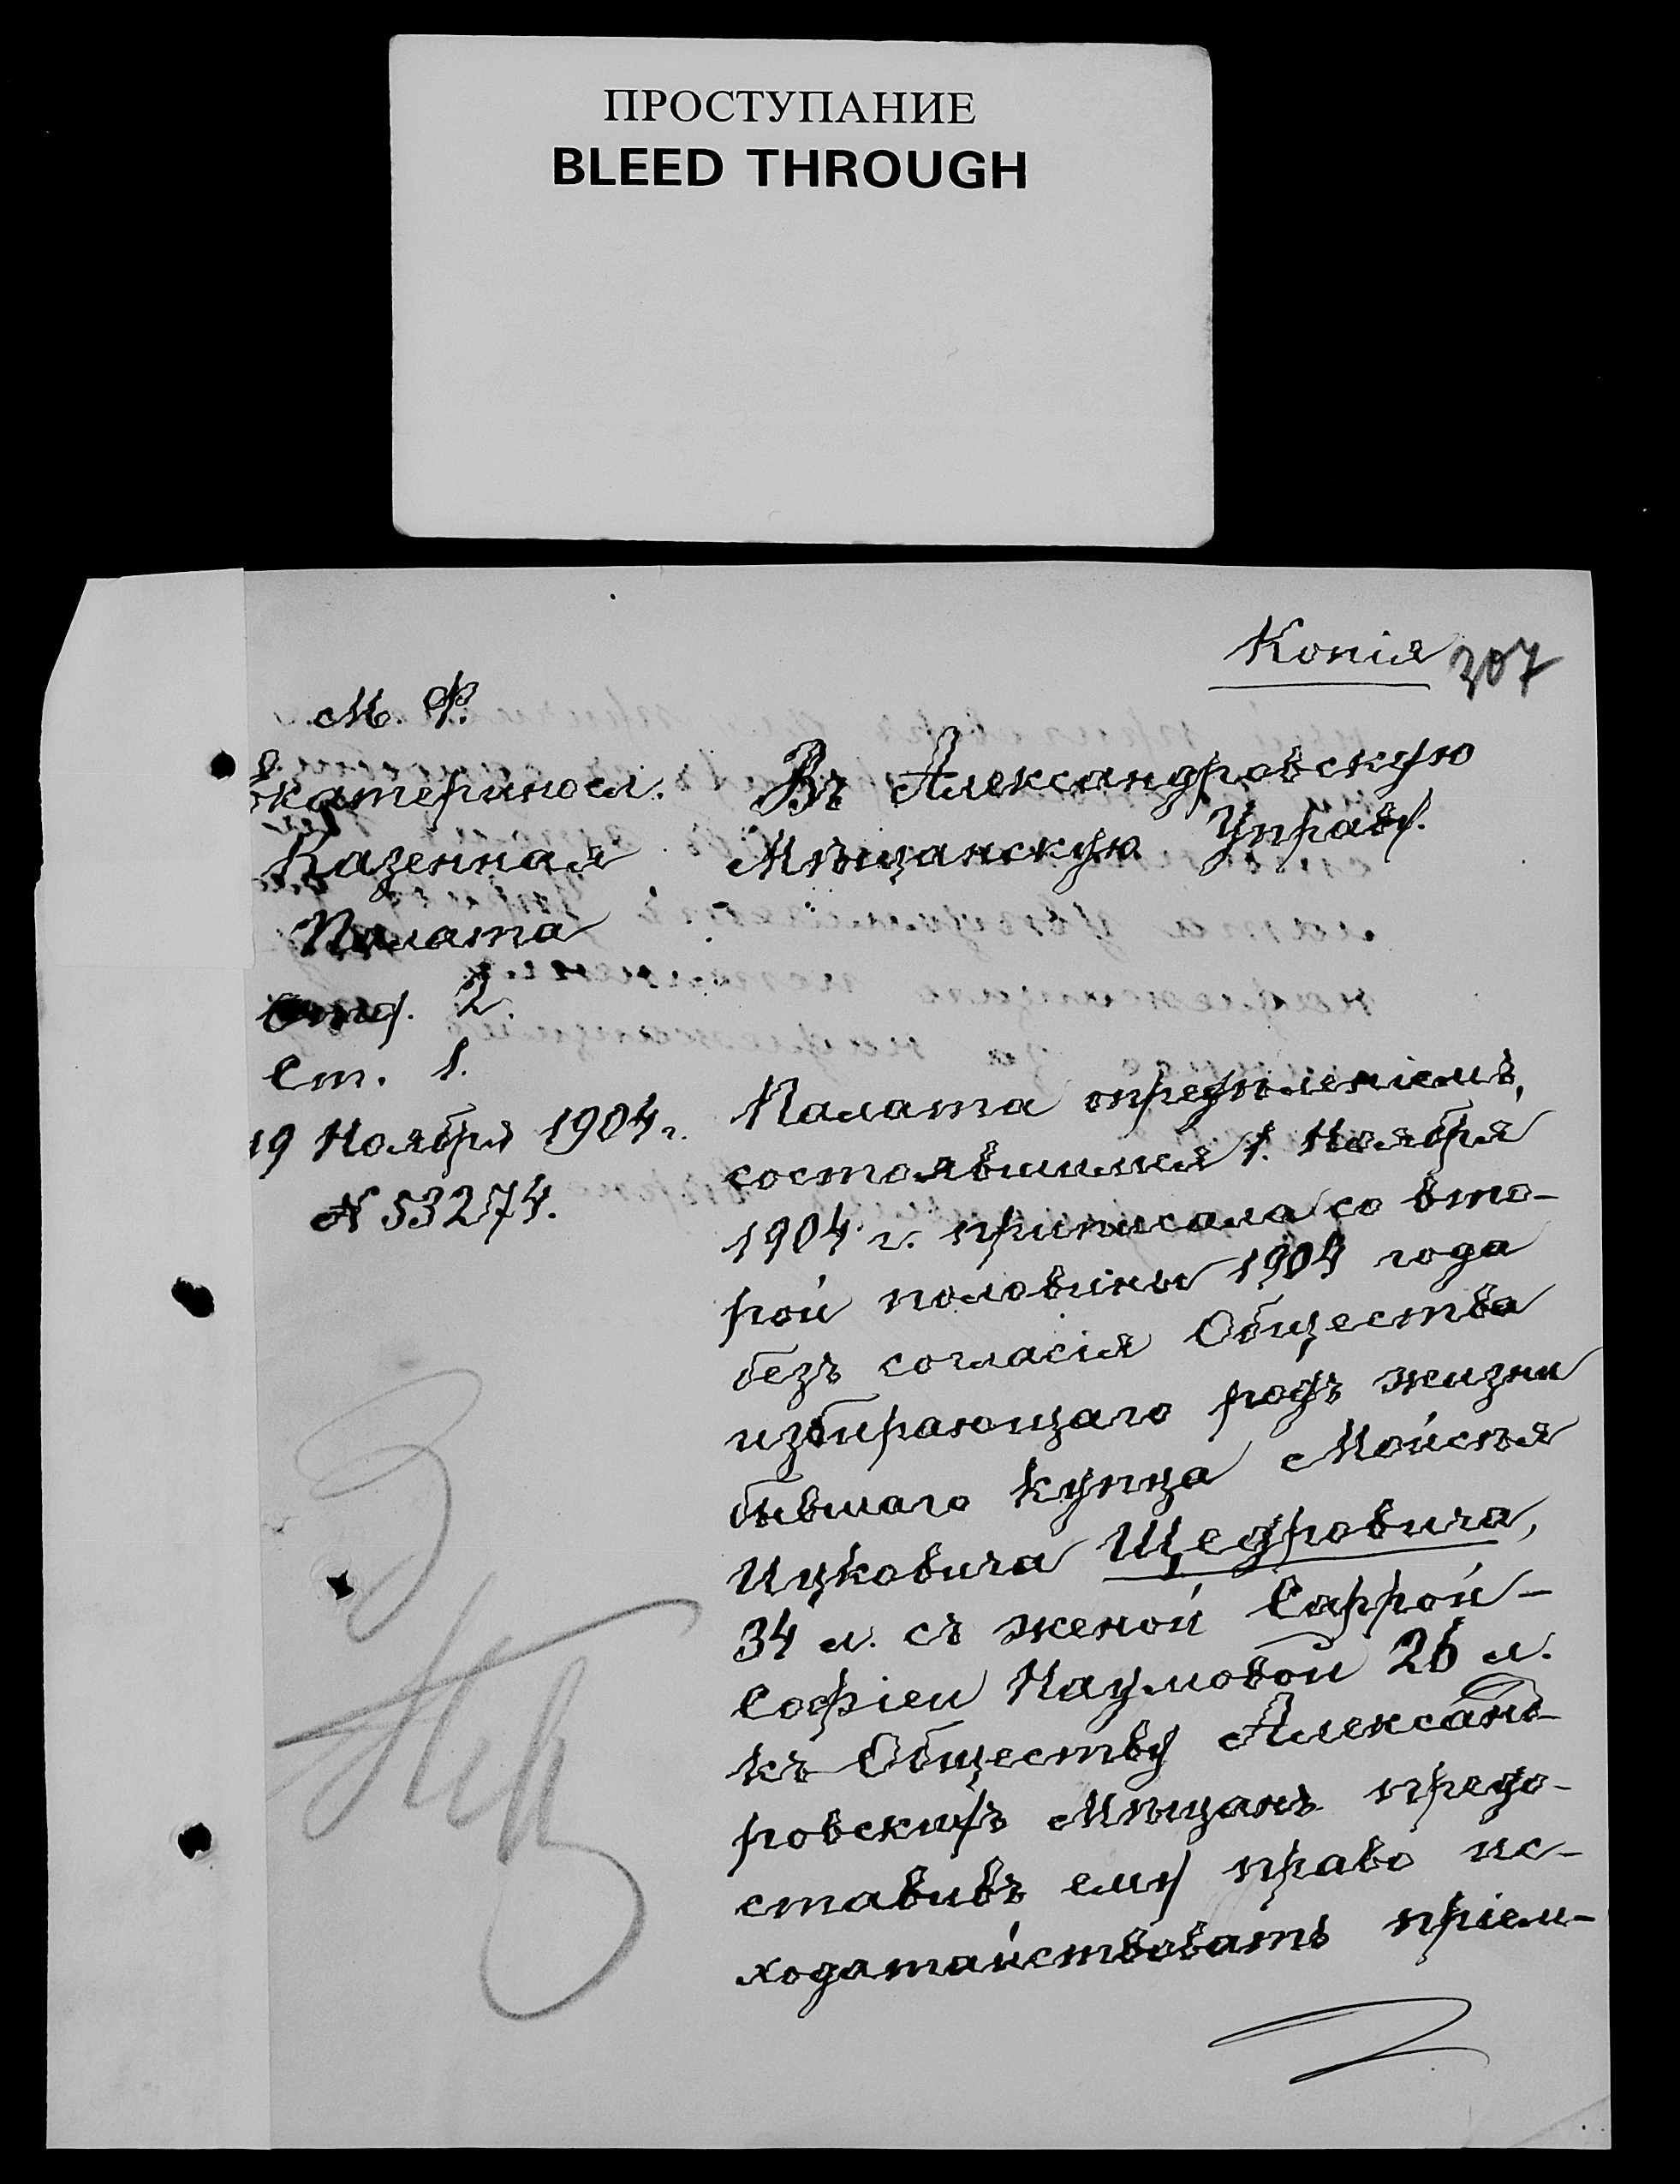 ПРОСТУПАНИЕ
BLEED THROUGH
Копія 307
М. Ф.
Екатериносл.
Казенная
Палата
Отд. 2.
Ст. 1.
19 Ноября 1904 г.
№ 53274.
Въ Александровскую
Мѣщанскую Управу.
Палата опредѣленіемъ,
состоявшимся 1. Ноября
1904 г. приписала со вто-
рой половины 1904 года
безъ согласія Общества
избирающаго родъ жизни
бывшаго купца Мойсѣя
Ицковича Щедровича,
34 л. съ женой Саррой-
Софіей Наумовой 26 л.
къ Обществу Александ-
ровскихъ Мѣщанъ предо-
ставивъ ему право ис-
ходатайствовать пріем-